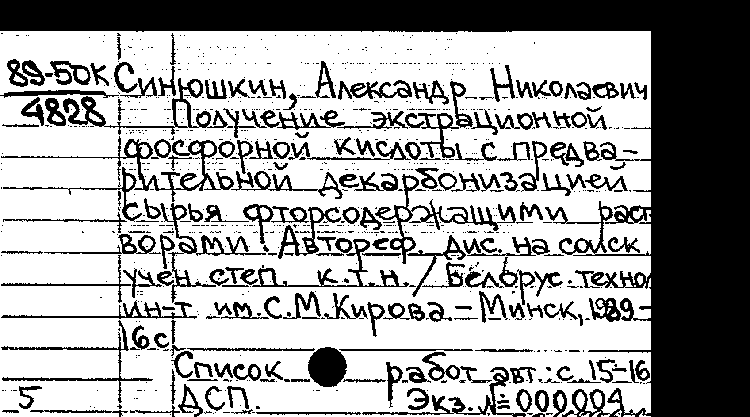 89-50К Синюшкин, Александр Николаевич
4828 Получение экстракционной
фосфорной кислоты с предва-
рительной декарбонизацией
сырья фторсодержащими раст
ворами: Автореф. дис. на соиск.
учен. степ. к.т.н. / Белорус. техно
ин-т им. С.М.Кирова. - Минск, 1989 -
16 с.
Список работ авт.: с. 15-16
5 ДСП. Экз. № 000004